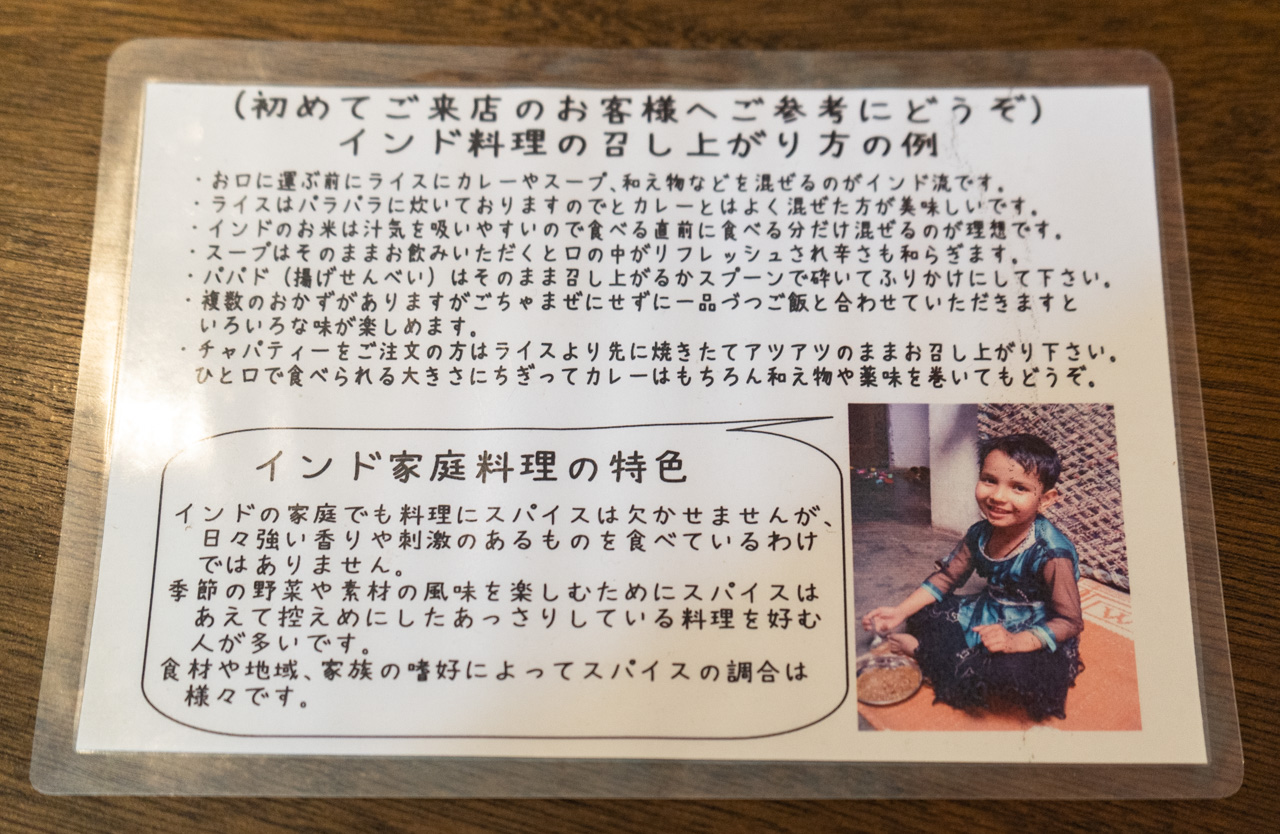 (初めてご来店のお客様へご参考にどうぞ)
インド料理の召し上がり方の例
・お口に運ぶ前にライスにカレーやスープ、和え物などを混ぜるのがインド流です。
・ライスはパラパラに炊いておりますのでとカレーとはよく混ぜた方が美味しいです。
・インドのお米は汁気を吸いやすいので食べる直前に食べる分だけ混ぜるのが理想です。
・スープはそのままお飲みいただくと口の中がリフレッシュされ辛さも和らぎます。
・パパド(揚げせんべい)はそのまま召し上がるかスプーンで砕いてふりかけにして下さい。
・複数のおかずがありますがごちゃまぜにせずに一品づつご飯と合わせていただきますと
いろいろな味が楽しめます。
・チャパティーをご注文の方はライスより先に焼きたてアツアツのままお召し上がり下さい。
ひと口で食べられる大きさにちぎってカレーはもちろん和え物や薬味を巻いてもどうぞ。
インド家庭料理の特色
インドの家庭でも料理にスパイスは欠かせませんが、
日々強い香りや刺激のあるものを食べているわけ
ではありません。
季節の野菜や素材の風味を楽しむためにスパイスは
あえて控えめにしたあっさりしている料理を好む
人が多いです。
食材や地域、家族の嗜好によってスパイスの調合は
様々です。